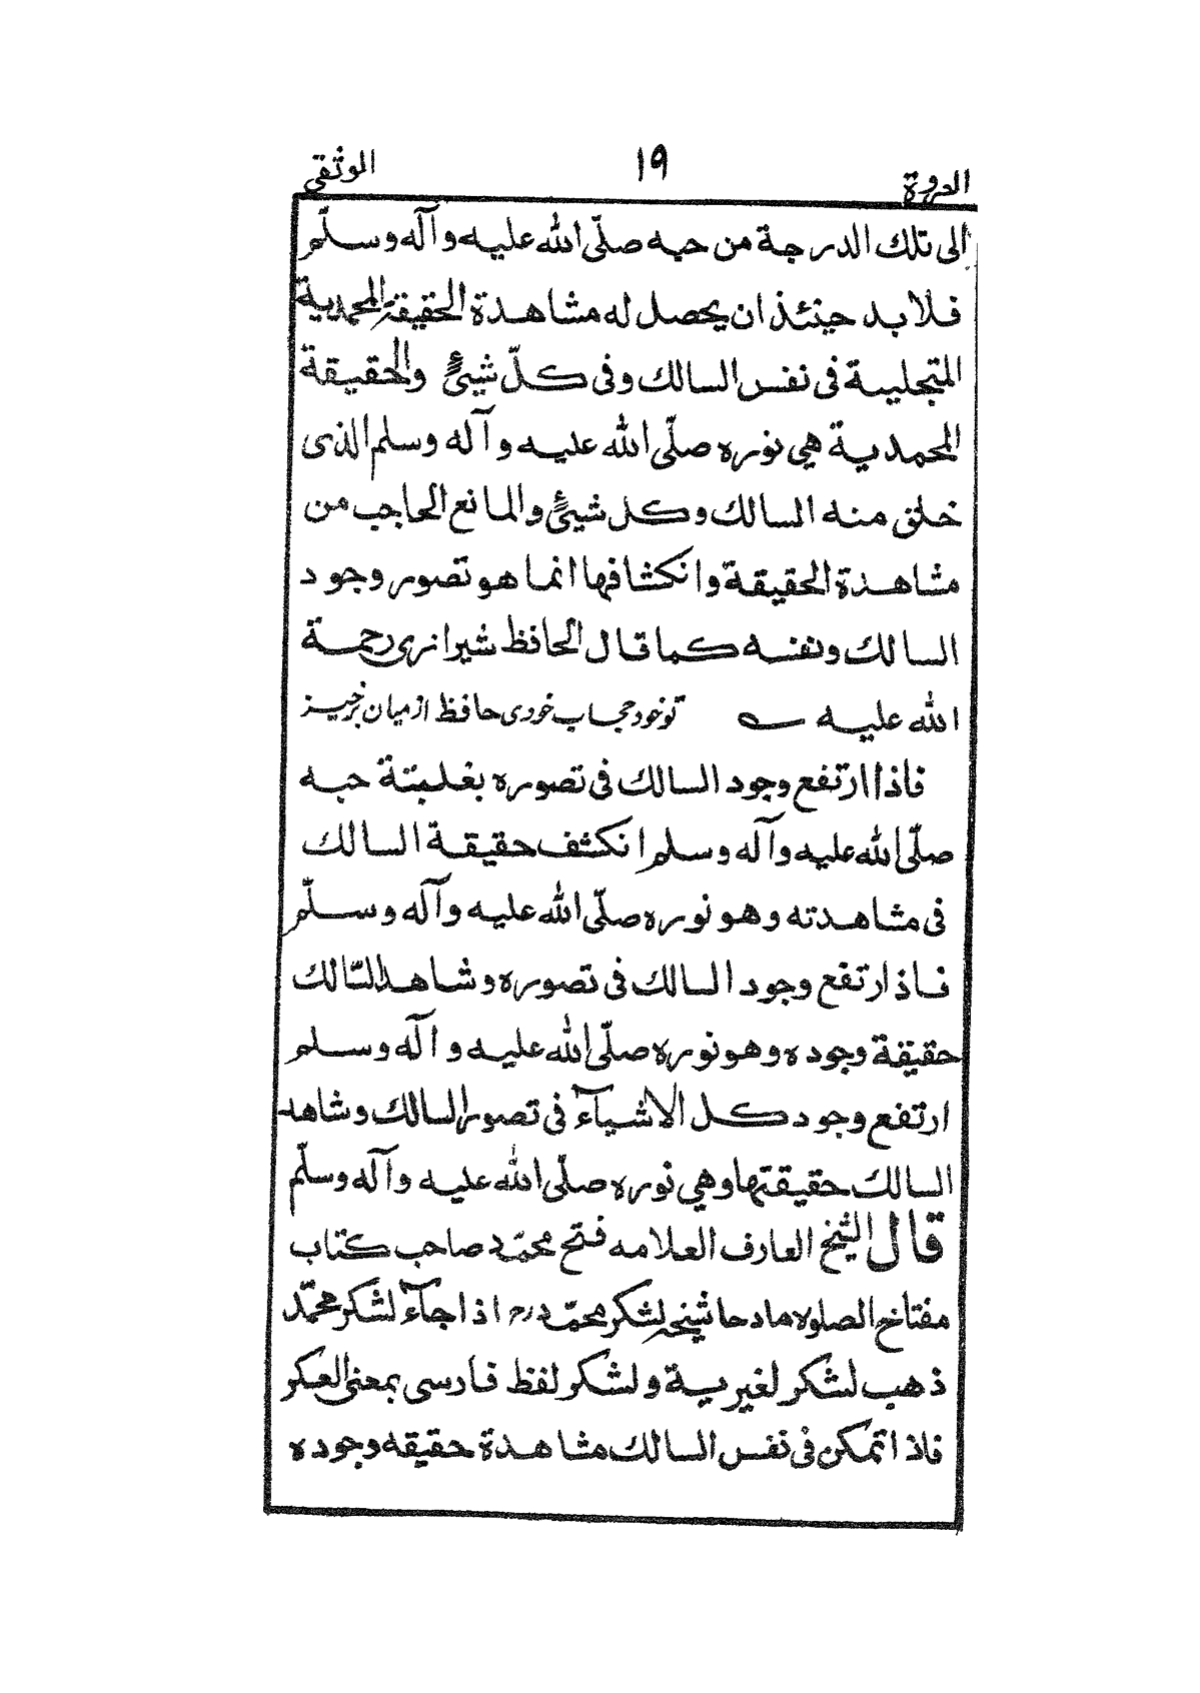 العروة ١٩ الوثقى
الى تلك الدرجة من حبه صلّى الله عليه وآله وسلّم
فلا بد حينئذ ان يحصل له مشاهدة الحقيقة المحمدية
المتجلية فى نفس السالك وفى كلّ شيئٍ والحقيقة
المحمدية هي نوره صلّى الله عليه وآله وسلم الذى
خلق منه السالك وكل شيئٍ والمانع الحاجب من
مشاهدة الحقيقة وانكشافها انما هو تصور وجود
السالك ونفسه كما قال الحافظ شيرازى رحمة
الله عليه ؎ تو خود حجاب خودى حافظ از ميان برخيز
فاذا ارتفع وجود السالك فى تصوره بغلبتة حبه
صلّى الله عليه وآله وسلم انكشف حقيقة السالك
فى مشاهدته وهو نوره صلّى الله عليه وآله وسلّم
فاذ ارتفع وجود السالك فى تصوره وشاهد السّالك
حقيقة وجوده وهو نوره صلّى الله عليه وآله وسلم
ارتفع وجود كل الاشيآء فى تصور السالك وشاهد
السالك حقيقتها وهي نوره صلّى الله عليه وآله وسلّم
قال الشيخ العارف العلامه فتح محمّد صاحب كتاب
مفتاح الصلوة مادحا شيخه لشكر محمّد رح اذا جآء لشكر محمّد
ذهب لشكر لغيرية ولشكر لفظ فارسى بمعنى العسكر
فاذا تمكن فى نفس السالك مشاهدة حقيقه وجوده